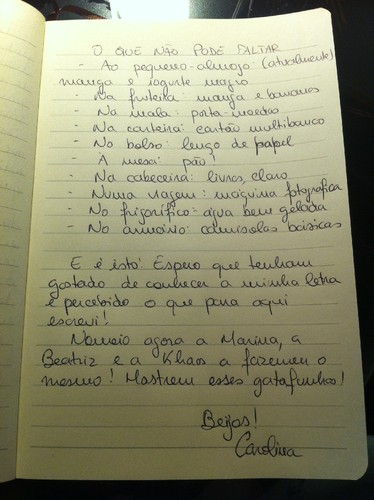 O QUE NÃO PODE FALTAR
- Ao pequeno-almoço: (atualmente)
manga e iogurte magro
- Na fruteira: manga e bananas
- Na mala: porta-moedas
- Na carteira: cartão multibanco
- No bolso: lenço de papel
- À mesa: pão!
- Na cabeceira: livros, claro
- Numa viagem: máquina fotográfica
- No frigorífico: água bem gelada
- No armário: camisolas básicas
E é isto! Espero que tenham
gostado de conhecer a minha letra
e percebido o que para aqui
escrevi!
Nomeio agora a Marina, a
Beatriz e a Khaos a fazerem o
mesmo! Mostrem esses gatafunhos!
Beijos!
Carolina